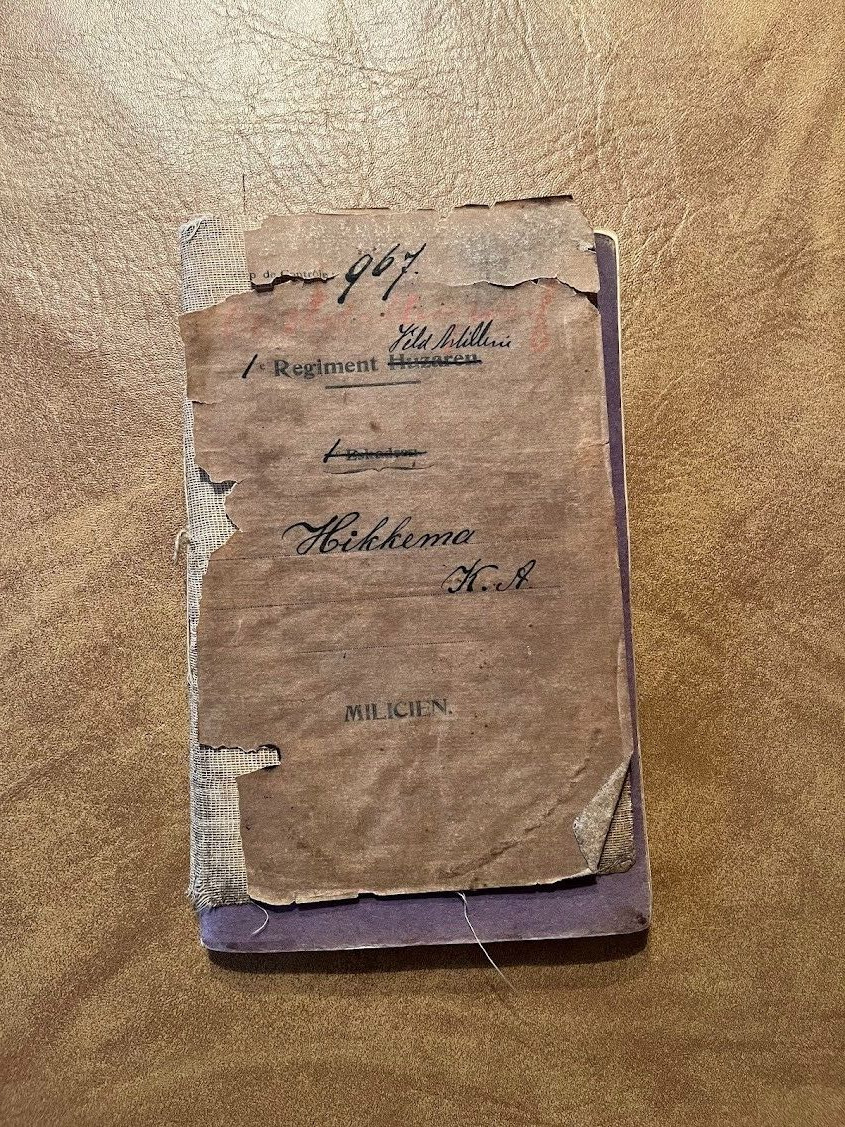 de Contrôle: 967.
Veld Artillerie
1e Regiment Huzaren
1 Eskadron
Hikkema
K. A.
MILICIEN.